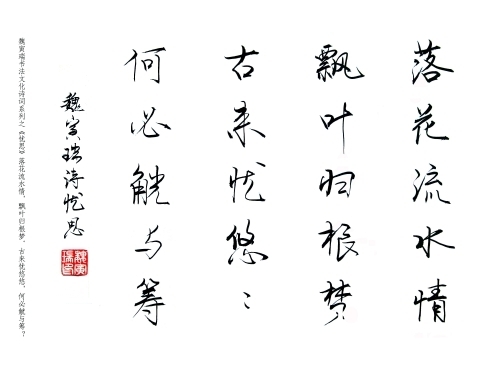 落花流水情
飘叶归根梦
古来忧悠〻
何必觥与筹
魏寅瑞诗忧思
魏寅瑞书法文化诗词系列之《忧思》落花流水情，飘叶归根梦。古来忧悠悠，何必觥与筹？